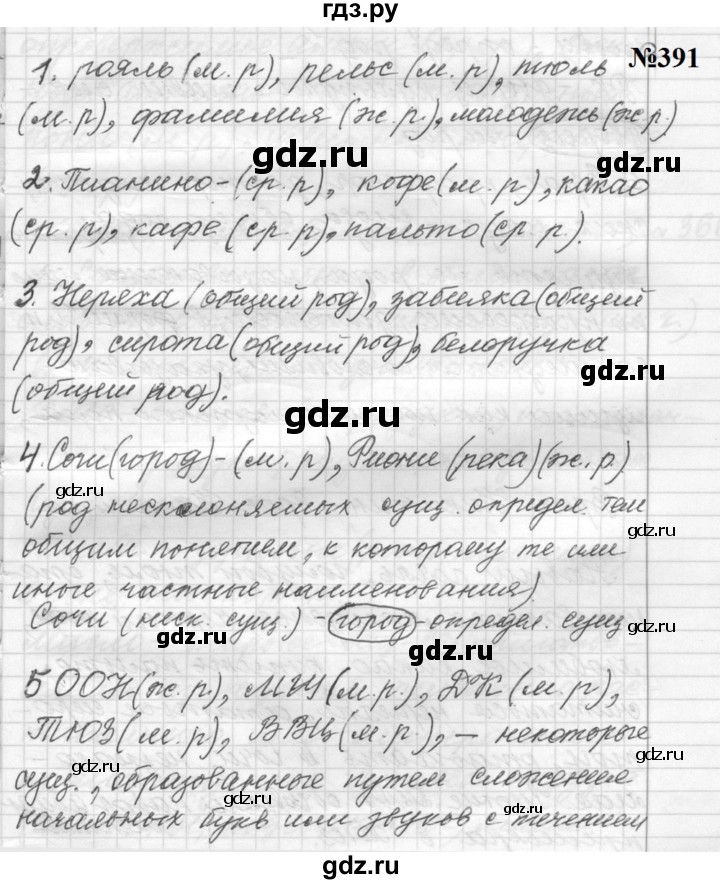 гдз.ру
№391
1. рояль (м. р), рельс (м. р), тюль
(м. р), фамилия (ж. р.), молодежь (ж.р.)
gdz.ru
gdz.ru
2. Пианино - (ср. р), кофе (м. р), какао
(ср. р), кафе (ср. р), пальто (ср. р.).
gdz.ru
3. Неряха (общий род), забияка (общий
род), сирота (общий род), белоручка
(общий род).
gdz.ru
gdz.ru
4. Сочи (город) - (м. р), Риони (река) (ж. р.)
gdz.ru
(род несклоняемых сущ. определ. тем
gdz.ru
общим понятием, к которому те или
иные частные наименования)
Сочи (неск. сущ.) - город - определ. сущ
gdz.ru
gdz.ru
gdz.ru
5 ООН (ж. р), МГУ (м. р.), ДК (м. р),
ТЮЗ (м. р), ВВЦ (м. р.), - некоторые
gdz.ru
gdz.ru
сущ., образованные путем сложения
начальных букв или звуков с течением
gdz.ru
gdz.ru